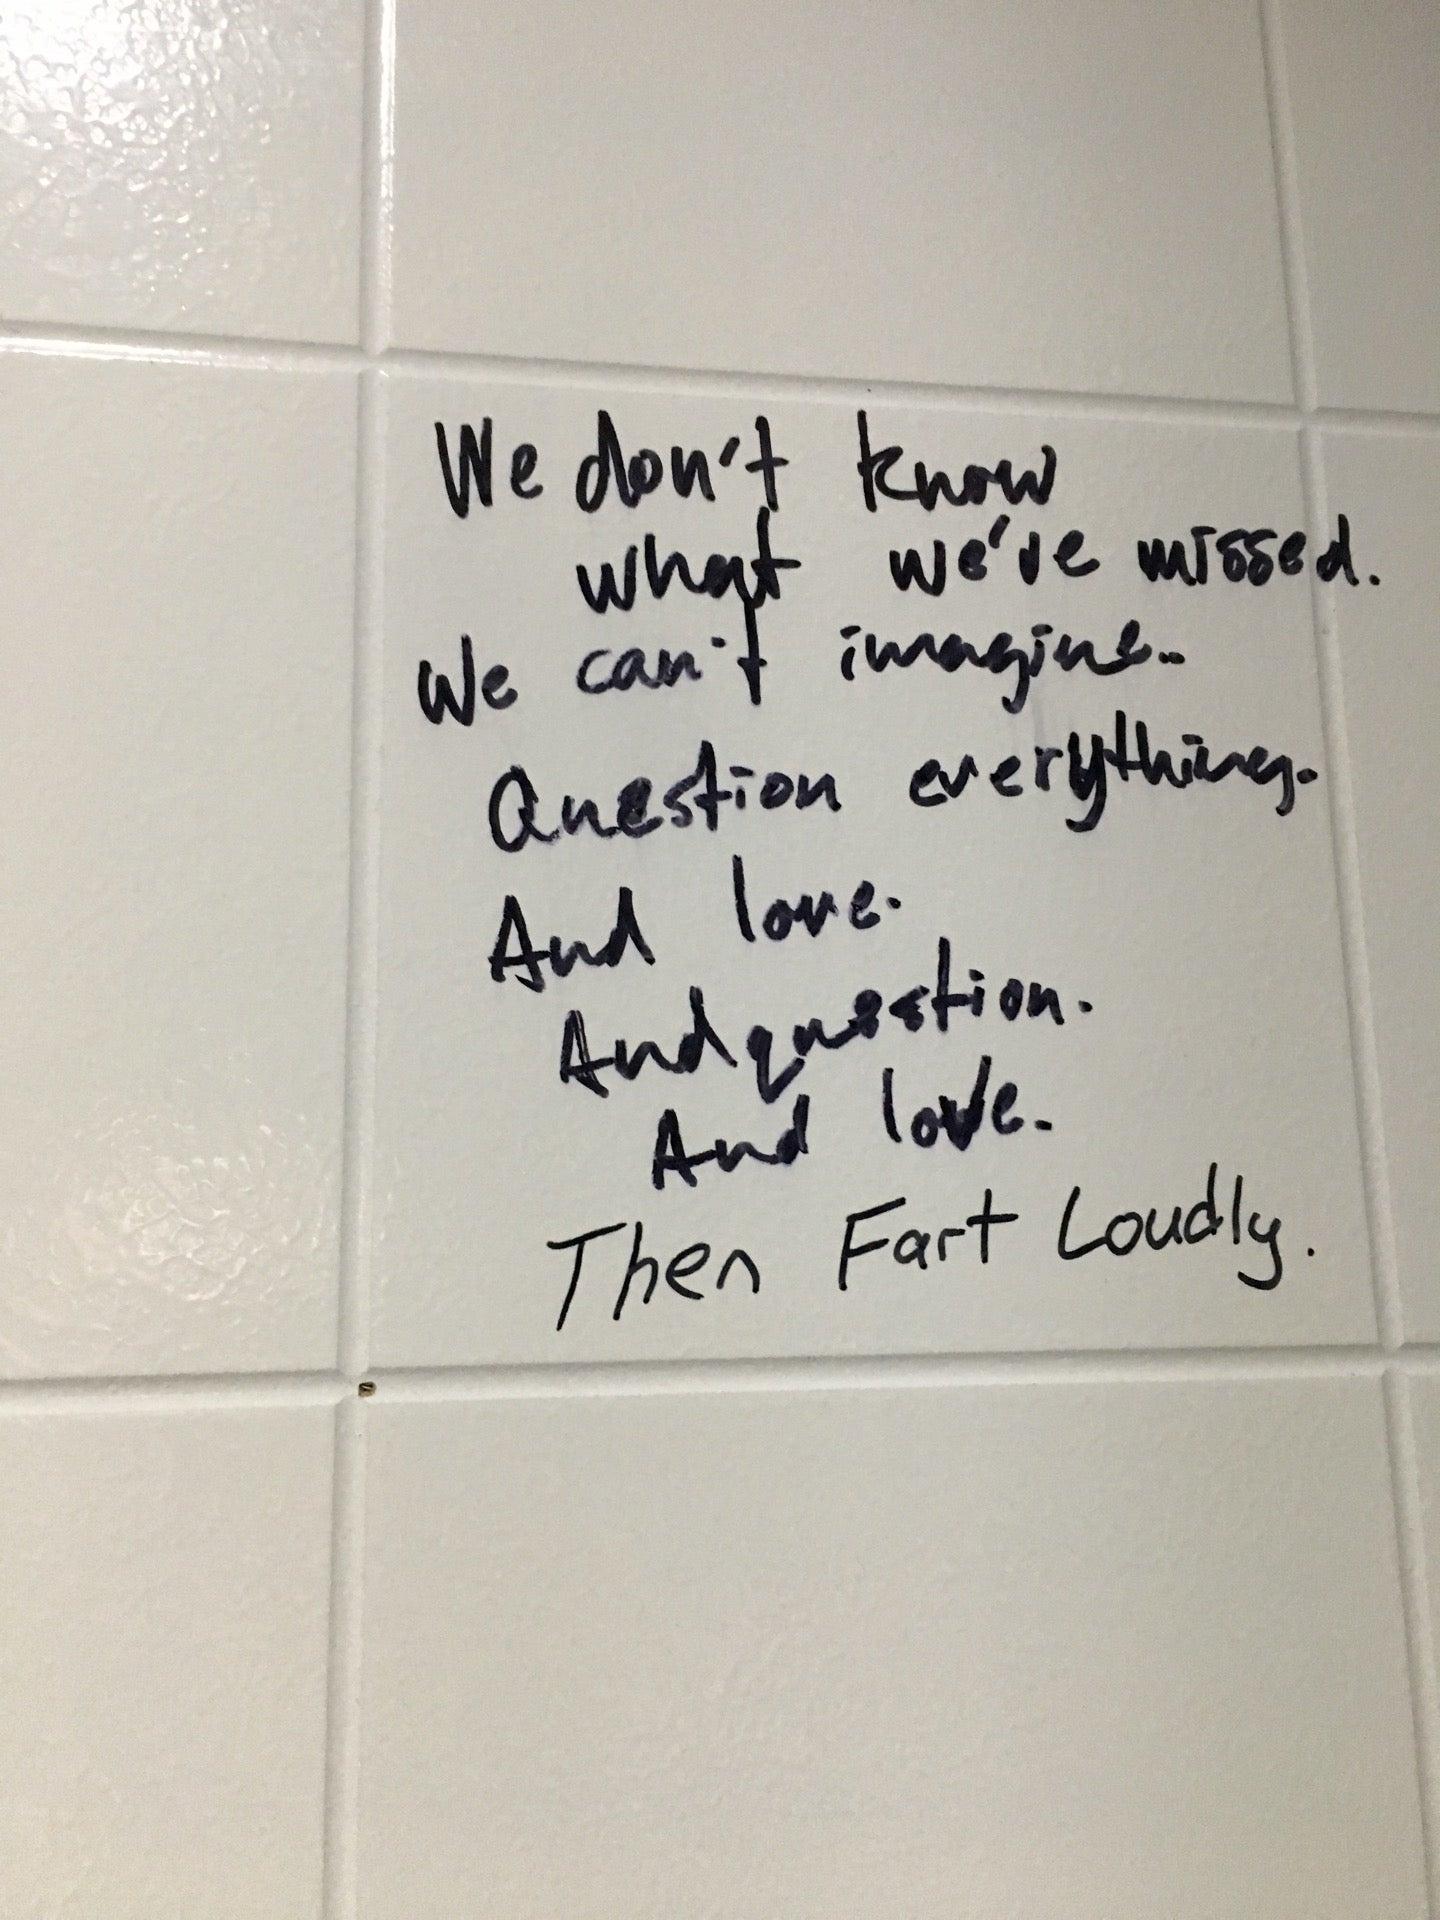 We don't know
what we've missed.
We can't imagine..
Question everything.
And love.
And question.
And love.
Then Fart Loudly.